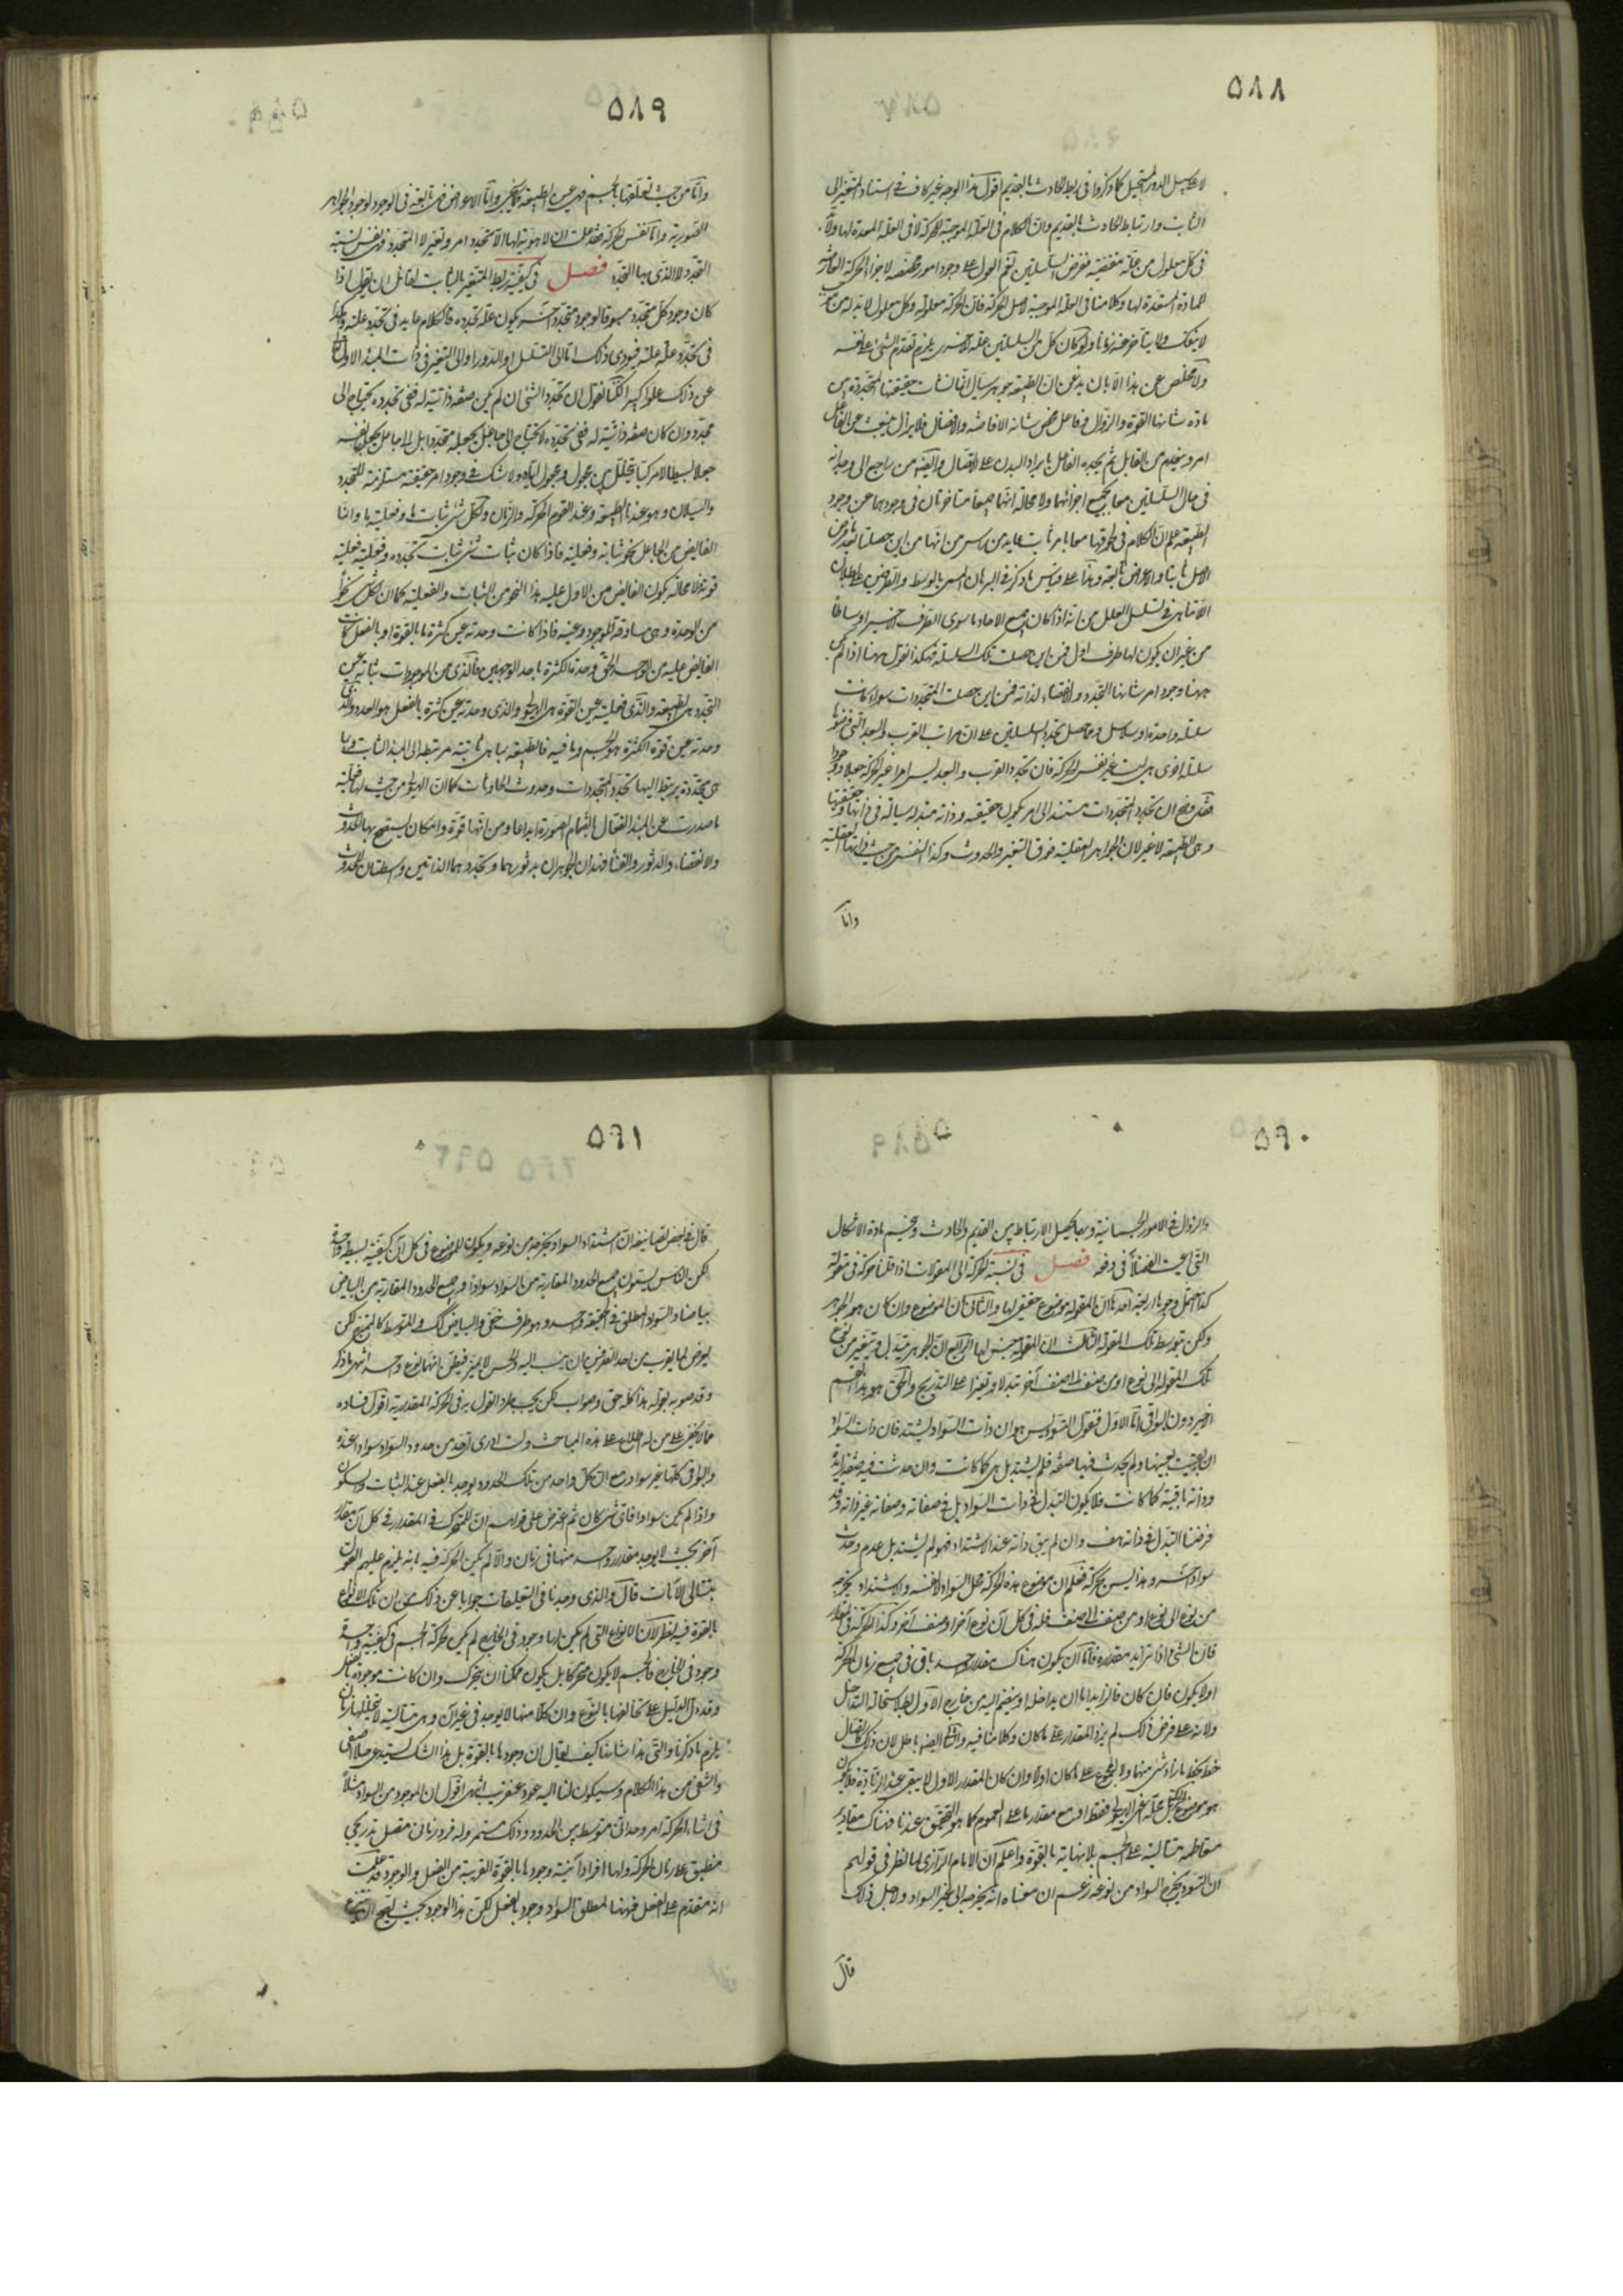 ٥٨٨
لا على سبيل الدور المستحيل كما ذكروا فى ربط الحادث بالقديم اقول هذا الوجه غير كاف فى استناد المتغير الى
الثابت وارتباط الحادث بالقديم فان الكلام فى العلة الموجبة للحركة لا فى العلة المعدة لها ولا
فى كل معلول من علة مقتضية ففرض السلسلتين نعم العون على وجود امور مخصصة لاجزاء الحركة العارضة
للمادة المستعدة لها وكلامنا فى العلة الموجبة لاصل الحركة فان الحركة معلولة وكل معلول لا بد له من
لا ينفك ولا يتأخر عنه زمانا ولو كان كل من السلسلتين علة للاخرى يلزم تقدم الشئ على نفسه
ولا مخلص عن هذا الا بان يذعن ان الطبيعة جوهر سيال انما نشأت حقيقتها المتجددة بين
مادة شأنها القوة والزوال وفاعل محض شأنه الافاضة والافضال فلا يزال ينبعث عن الفاعل
امر وينعدم من القابل ثم يجبره الفاعل بايراد البدل على الاتصال وايضا من راجع الى وجدانه
فى حال السلسلتين معا بجميع اجزائهما ولا محالة انهما جميعا متاخرتان فى وجودهما عن وجود
الطبيعة علم ان الكلام فى لحوقها معا بامر ثابت عايد من راس من انها من اين حصلتا بعد فرض
الاصل ثابتا والاعراض تابعة وهذا على قياس ما ذكر فى البرهان المسمى بالوسط والطرفين على بطلان
اللاتناهى فى تسلسل العلل من انه اذا كان جميع الاحاد ما سوى الطرف الاخير اوساطا
من غير ان يكون لها طرف اول فمن اين حصلت تلك السلسلة فهكذا نقول هيهنا اذا لم يكن
هيهنا وجود امر شانها التجدد والانقضاء لذاته فمن اين حصلت المتجددات سواء كانت
سلسلة واحدة او سلاسل وحاصل تجدد السلسلتين على ان مراتب القرب والبعد التى فرضوها
سلسلة اخرى هى ليست غير نفس الحركة فان تجدد القرب والبعد ليس امرا غير الحركة جعلا ووجودا
فقد وضح ان تجدد المتجددات مستند الى امر يكون حقيقته وذاته متبدلة سيالة فى ذاتها وحقيقتها
وهى الطبيعة لا غير لان الجواهر العقلية فوق التغير والحدوث وكذا النفس من حيث ذاتها العقلية
واما
٥٨٩
واما من حيث تعلقها بالجسم فهى عين الطبيعة كما سيجئ واما الاعراض فهى تابعة فى الوجود لوجود الجواهر
الصورية واما نفس الحركة فقد علمت ان لا هوية لها الا تجدد امر وتغيره لا المتجدد فهى نفس نسبة
التجدد لا الذى بها التجدد فصل فى كيفية ربط المتغير بالثابت لقائل ان يقول اذا
كان وجود كل متجدد مسبوقا لوجود متجدد آخر يكون علة تجدده فالكلام عايد فى تجدد علته وهكذا
فى تجدد علة علته فيؤدى ذلك اما الى التسلسل او الدور او الى التغير فى ذات المبدء الاول تعالى
عن ذلك علوا كبيرا لكنا نقول ان تجدد الشئ ان لم يكن صفة ذاتية له ففى تجدده يحتاج الى
مجدد وان كان صفة ذاتية له ففى تجدده لا يحتاج الى جاعل يجعله متجددا بل الى جاعل يجعل نفسه
جعلا بسيطا لا مركبا يتخلل بين مجعول ومجعول اليه ولا شك فى وجود امر حقيقته مستلزمة للتجدد
والسيلان وهو عندنا الطبيعة وعند القوم الحركة والزمان ولكل شئ ثبات ما وفعلية ما وانما
الفايض من الجاعل نحو ثباته وفعليته فاذا كان ثبات شئ ثبات تجدده وفعليته فعلية
قوته فلا محالة يكون الفايض من الاول عليه هذا النحو من الثبات والفعلية كما ان لكل شئ نحوا
من الوحدة وهى مساوقة للوجود وعينه فاذا كانت وحدته عين كثرة ما بالقوة او بالفعل كانت
الفايض عليه من الواحد الحق وحدة الكثرة باحد الوجهين فالذى من الموجودات ثباته عين
التجدد هى الطبيعة والذى فعليته عين القوة هى الهيولى والذى وحدته عين كثرة بالفعل هو العدد والذى
وحدته عين قوة الكثرة هو الجسم وما فيه فالطبيعة بما هى ثابتة مرتبطة الى المبدء الثابت وبما
هى متجددة يرتبط اليها تجدد المتجددات وحدوث الحادثات كما ان الهيولى من حيث لها فعلية
ما صدرت عن المبدء الفعال بانضمام الصورة ابداعا ومن انها قوة وامكان يستصح بها الحدوث
والانقضاء والدثور والفناء فهذان الجوهران بدثورهما وتجددهما الذاتيين واسطتان للحدوث
٥٩٠
والزوال فى الامور الجسمانية وبهما يحصل الارتباط بين القديم والحادث وينحسم مادة الاشكال
التى اعيت الفضلاء فى دفعه فصل فى نسبة الحركة الى المقولات اذا قلنا حركة فى مقولة
كذا احتمل وجوها اربعة احدها ان المقولة موضوع حقيقى لها والثانى ان الموضوع وان كان هو الجوهر
ولكن بتوسط تلك المقولة الثالث ان المقولة جنس لها الرابع ان الجوهر يتبدل ويتغير من نوع
تلك المقولة الى نوع او من صنف الى صنف آخر تبدلا وتغيرا على التدريج والحق هو هذا القسم
الاخير دون البواقى اما الاول فنقول التسود ليس هو ان ذات السواد يشتد فان ذات السواد
ان بقيت بعينها ولم يحدث فيها صفة فلم يشتد بل هى كما كانت وان حدث فيه صفة زايدة
وذاته باقية كما كانت فلا يكون التبدل فى ذات السواد بل فى صفاته وصفاته غير ذاته وقد
فرضنا التبدل فى ذاته هف وان لم يبق ذاته عند الاشتداد فهو لم يشتد بل عدم وحدث
سواد آخر وهذا ليس بحركة فعلم ان موضوع هذه الحركة محل السواد لا نفسه والاشتداد يخرجه
من نوع الى نوع او من صنف الى صنف فله فى كل آن نوع آخر او صنف آخر وكذا الحركة فى المقدار
فان الشئ اذا تزايد مقداره فاما ان يكون هناك مقدار واحد باق فى جميع زمان الحركة
اولا يكون فان كان فالزايد اما ان يداخله او ينضم اليه من خارج الاول بطلاستحالة التداخل
ولانه على فرض ذلك لم يزد المقدار على ما كان وكلامنا فيه والثانى ايضا باطل لان ذلك كاتصال
خط بخط ما زاد شئ منهما ولا المجموع على ما كان اولا وان كان المقدار الاول لا يبقى عند الزيادة فلا يكون
هو موضوع الحركة بل محله اعنى الهيولى فقط او مع مقدار ما على العموم كما هو التحقيق عندنا فهناك مقادير
متعاقبة متتالية على الجسم بلا نهاية بالقوة واعلم ان الامام الرازى لما نظر فى قولهم
ان التسود يخرج السواد من نوعه زعم ان معناه انه يخرجه الى غير السواد ولاجل ذلك
قال
٥٩١
قال فى بعض تصانيفه ان اشتداد السواد يخرجه من نوعه ويكون للموضوع فى كل آن كيفية بسيطة واحدة
لكن الناس يسمون جميع الحدود المقاربة من السواد سوادا وجميع الحدود المقاربة من البياض
بياضا والسواد المطلق فى الحقيقة واحد وهو طرف خفى والبياض كذلك والمتوسط كالممتزج لكن
يعرض لما يقرب من احد الطرفين ان ينسب اليه والحس لا يميز فيظن انهما نوع واحد انتهى ما ذكر
وقد صوبه بقوله هذا كله حق وصواب لكن يجب طرد القول به فى الحركة المقدارية اقول فساده
مما لا يخفى على من له اطلاع على هذه المباحث ولست ادرى اى حد من حدود السواد سواد عنده
والبواقى كلها غير سواد مع ان كل واحد من تلك الحدود يوجد بالفعل عند الثبات والسكون
واذا لم يكن سوادا فاى شئ كان ثم اعترض على قولهم ان للمتحرك فى المقدار فى كل آن مقدار
آخر بحيث لا يوجد مقدار واحد منها فى زمان والا لم يكن الحركة فيه بانه يلزم عليهم القول
بتتالى الآنات قال والذى وجدنا فى التعليقات جوابا عن ذلك هو ان تلك الانواع
بالقوة فيه نظر لان الانواع التى لم يكن لها وجود فى الخارج لم يكن لحركة الجسم فى كيفية واحدة
وجود فى الخارج فالجسم لا يكون متحركا بل يكون ممكنا ان يتحرك وان كانت موجودة بالفعل
وقد دل الدليل على تخالفها بالنوع وان كلا منها لا يوجد فى غير آن وهى متتالية لا يتخللها زمان
يلزم ما ذكرنا والتى هذا شانها كيف يقال ان وجودها بالقوة بل هذا الشك يستدعى حلا اصفى
واشفى من هذا الكلام وسيكون لنا اليه عود عنقريب انتهى اقول ان الموجود من السواد مثلا
فى اثناء الحركة امر وحدانى متوسط بين الحدود وذلك مستمر وله فرد زمانى متصل تدريجى
منطبق على زمان الحركة ولها افراد آنية وجودها بالقوة القريبة من الفعل والوجود قد علمت
انه متقدم على الفعل فهنا لمطلق السواد وجود بالفعل لكن هذا الوجود بحيث يصح ان ينتزع